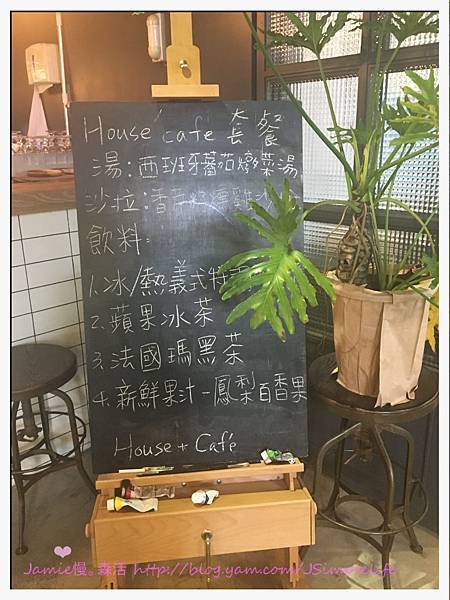 House cafe 套餐
湯:西班牙蕃茄燉菜湯
沙拉:香 雞沙
飲料:
1.冰/熱義式特調
2.蘋果冰茶
3.法國瑪黑茶
4.新鮮果汁-鳳梨百香果
House + Café
Jamie慢。森活 http://blog.yam.com/JSimplelife